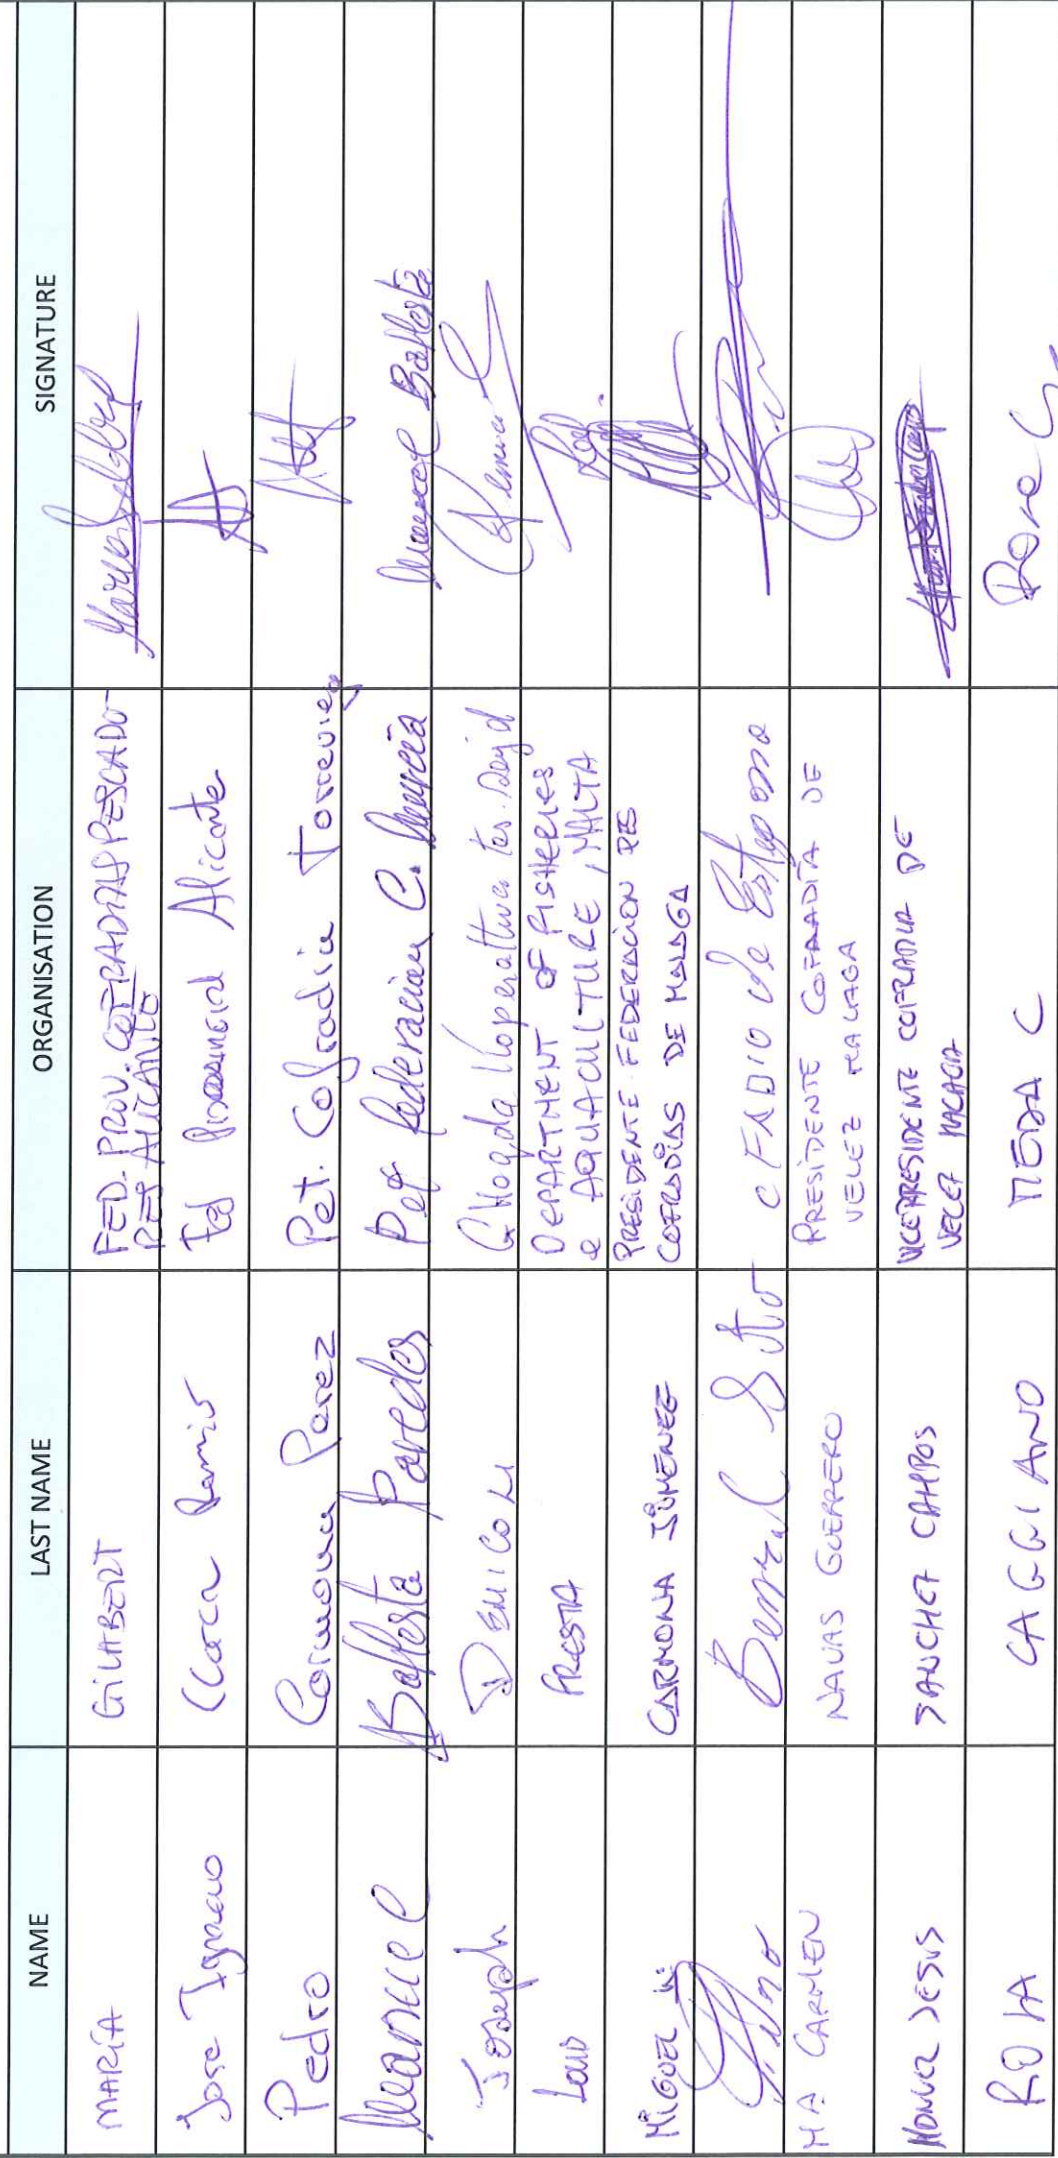 NAME LAST NAME ORGANISATION SIGNATURE
MARÍA GILABERT FED. PROV. COFRADIAS PESCADO-
RES ALICANTE
Jose Ignacio Llorca Ramis Fed Provincial Alicante
Pedro Carmona Parez Pet. Cofradia Torrevieja
Manuel Ballesta Paredes Pet federacion C. Murcia
Manuel Ballesta
Joseph DEMICOLI Ghaqda Koperattiva tas-Sajd
PRESTA DEPARTMENT OF FISHERIES
e AQUACULTURE, MALTA
MIGUEL CARMONA JIMENEZ PRESIDENTE FEDERACION PES
COFRADIAS DE MALAGA
Bernal de Estepona
Mª CARMEN NAVAS GUERRERO PRESIDENTE COFRADÍA DE
VELEZ MALAGA
MANUEL JESUS SANCHEZ CAMPOS VICEPRESIDENTE COFRADIA DE
VELEZ MALAGA
CAGGIANO MEDAC